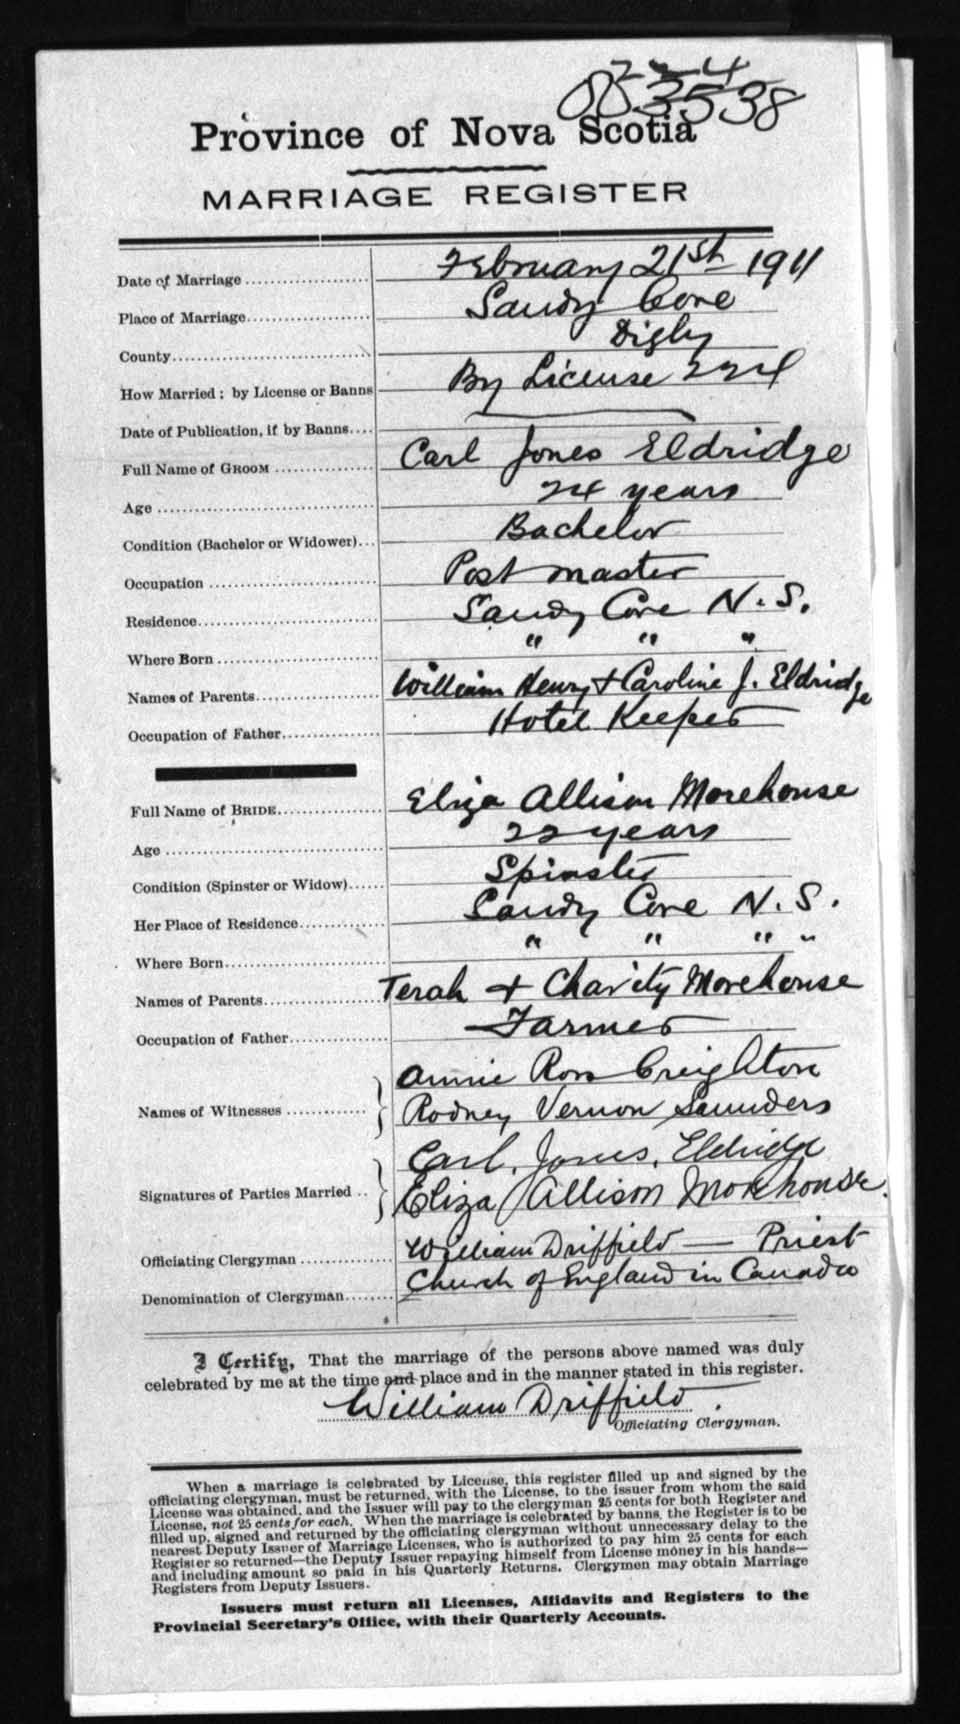 224
353538
Province of Nova Scotia
MARRIAGE REGISTER
Date of Marriage February 21st 1911
Place of Marriage Sandy Cove
County Digby
How Married; by License or Banns By License 224
Date of Publication, if by Banns
Full Name of GROOM Carl Jones Eldridge
Age 24 years
Condition (Bachelor or Widower) Bachelor
Occupation Post master
Residence Sandy Cove N.S.
Where Born " " "
Names of Parents William Henry + Caroline J. Eldridge
Occupation of Father Hotel Keeper
Full Name of BRIDE Eliza Allison Morehouse
Age 22 years
Condition (Spinster or Widow) Spinster
Her Place of Residence Sandy Cove N.S.
Where Born " " " "
Names of Parents Terah + Charity Morehouse
Occupation of Father Farmer
Annie Ross Creighton
Names of Witnesses Rodney Vernon Saunders
Carl. Jones. Eldridge
Signatures of Parties Married Eliza Allison Morehouse.
Officiating Clergyman William Driffield — Priest
Denomination of Clergyman Church of England in Canada
I Certify, That the marriage of the persons above named was duly
celebrated by me at the time and place and in the manner stated in this register.
William Driffield.
Officiating Clergyman.
When a marriage is celebrated by License, this register filled up and signed by the
officiating clergyman, must be returned, with the License, to the issuer from whom the said
License was obtained, and the Issuer will pay to the clergyman 25 cents for both Register and
License, not 25 cents for each. When the marriage is celebrated by banns, the Register is to be
filled up, signed and returned by the officiating clergyman without unnecessary delay to the
nearest Deputy Issuer of Marriage Licenses, who is authorized to pay him 25 cents for each
Register so returned—the Deputy Issuer repaying himself from License money in his hands—
and including amount so paid in his Quarterly Returns. Clergymen may obtain Marriage
Registers from Deputy Issuers.
Issuers must return all Licenses, Affidavits and Registers to the
Provincial Secretary's Office, with their Quarterly Accounts.